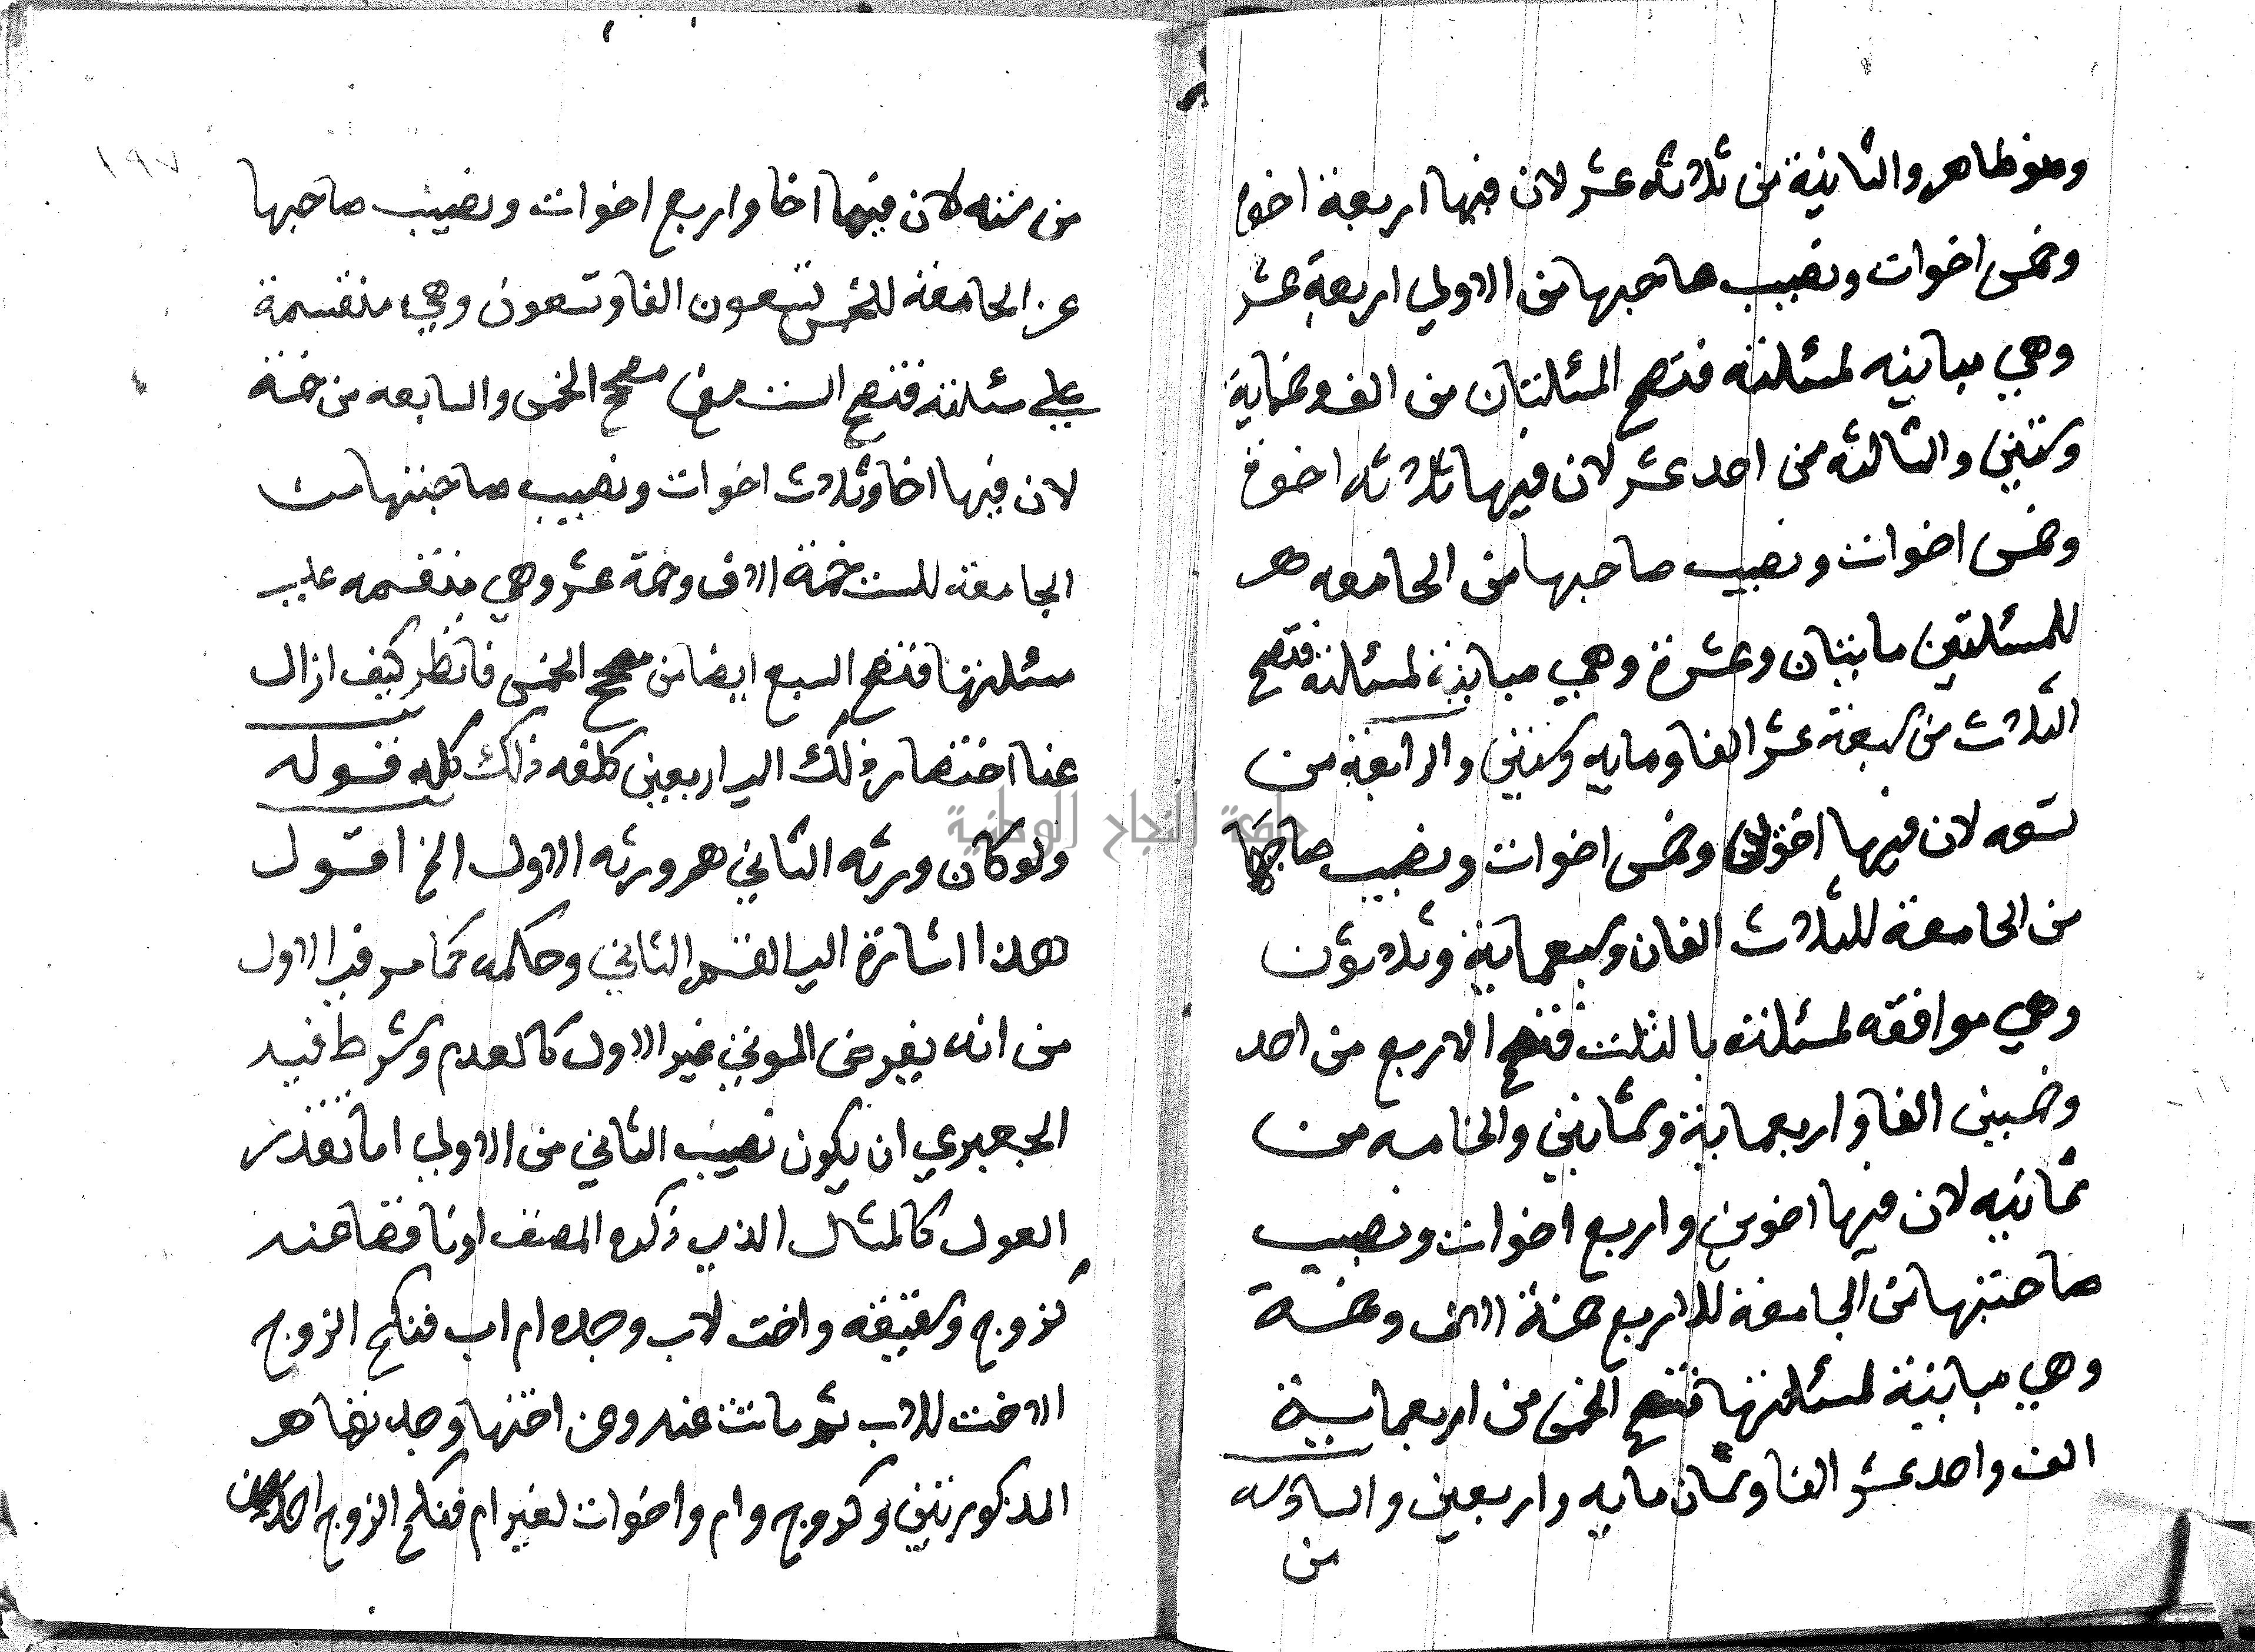 وهو ظاهر والثانية من ثلاثه عشر لان فيها اربعة اخوة
وخمس اخوات ونصيب صاحبها من الاولي اربعة عشر
وهي مباينه لمسئلته فتصح المسئلتان من الف وثمانية
وستين والثالثه من احد عشر لان فيها ثلاثه اخوة
وخمس اخوات ونصيب صاحبها من الجامعه
للمسئلتين مايتان وعشرة وهي مباينة لمسئلته فتصح
الثلاث من سبعة عشر الفا ومايه وستين والرابعة من
تسعه لان فيها اخوان وخمس اخوات ونصيب صاحبها
من الجامعة للثلاث الفان وسبعماية وثلاثون
وهي موافقه لمسئلته بالثلث فتصح الاربع من احد
وخمسين الفا واربعماية وثمانين والخامسه من
ثمانيه لان فيها اخوين واربع اخوات ونصيب
صاحبتها من الجامعة للاربع خمسة الاف وخمسة
وهي مباينة لمسئلتها فتصح الخمس من اربعماية
الف واحد عشر الفا وثمان مايه واربعين والسادسه
من
١٩٧
من ستة لان فيها اخا واربع اخوات ونصيب صاحبها
من الجامعة للخمس تسعون الفا وتسعون وهي منقسمة
علي مسئلته فتصح الست من مصحح الخمس والسابعه من خمسة
لان فيها اخا وثلاث اخوات ونصيب صاحبتها من
الجامعة للست خمسة الاف وخمسة عشر وهي منقسمه علي
مسئلتها فتصح السبع ايضا من مصحح الخمس فانظر كيف ازال
عنا اختصار ذلك الي اربعين كلفه ذلك كله قوله
ولو كان ورثه الثاني هم ورثه الاول الخ اقول
هذا اشارة الي القسم الثاني وحكمه كما مر في الاول
من انه يفرض الموتي غير الاول كالعدم وشرط فيه
الجعبري ان يكون نصيب الثاني من الاولي اما بقدر
العول كالمثال الذي ذكره المصنف او ناقصا عنه
كزوج وشقيقه واخت لاب وجده ام اب فنكح الزوج
الاخت للاب ثم ماتت عنه وعن اختها وجدتها
المذكورتين وكزوج وام واخوات لغير ام فنكح الزوج احداهن
جامعة النجاح الوطنية